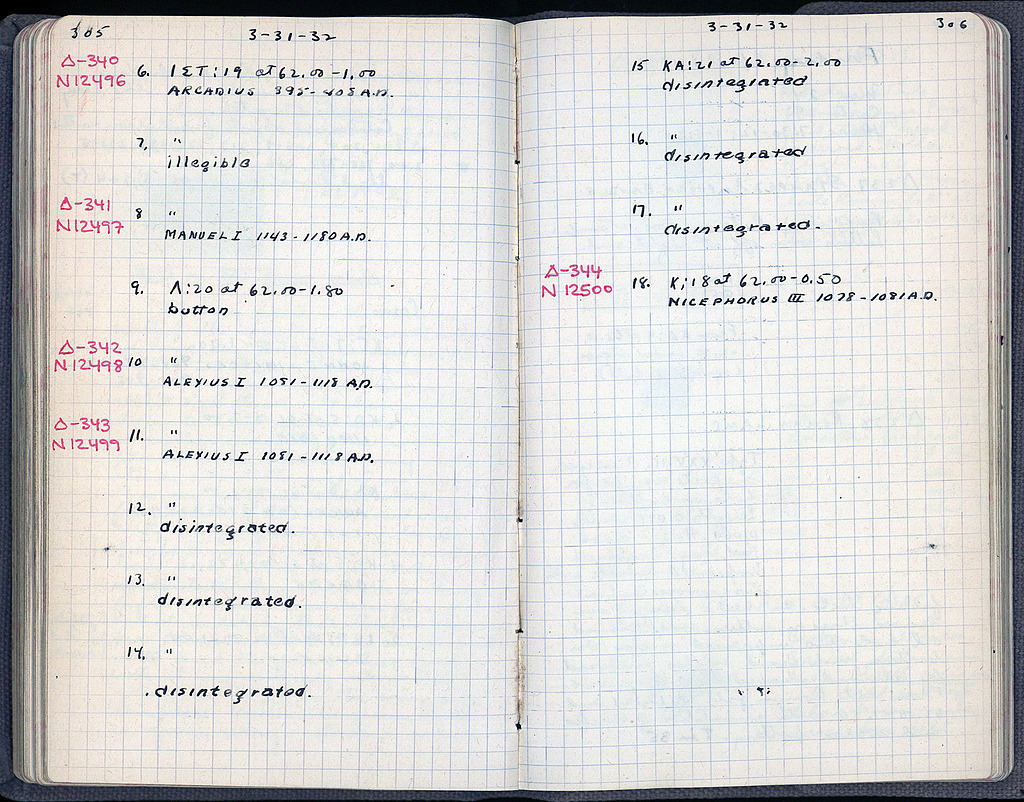 305
3-31-32
Δ-340
N12496
6. ΙΣΤ:19 at 62.00-1.00
ARCADIUS 395-408 A.D.
7. "
illegible
Δ-341
N12497
8 "
MANUEL I 1143-1180 A.D.
9. Λ:20 at 62.00-1.80
button
Δ-342
N12498
10 "
ALEXIUS I 1081-1118 A.D.
Δ-343
N12499
11. "
ALEXIUS I 1081-1118 A.D.
12. "
disintegrated.
13. "
disintegrated.
14. "
disintegrated.
3-31-32
306
15 KA:21 at 62.00-2.00
disintegrated
16. "
disintegrated
17. "
disintegrated.
Δ-344
N 12500
18. K:18 at 62.00-0.50
NICEPHORUS III 1078-1081 A.D.